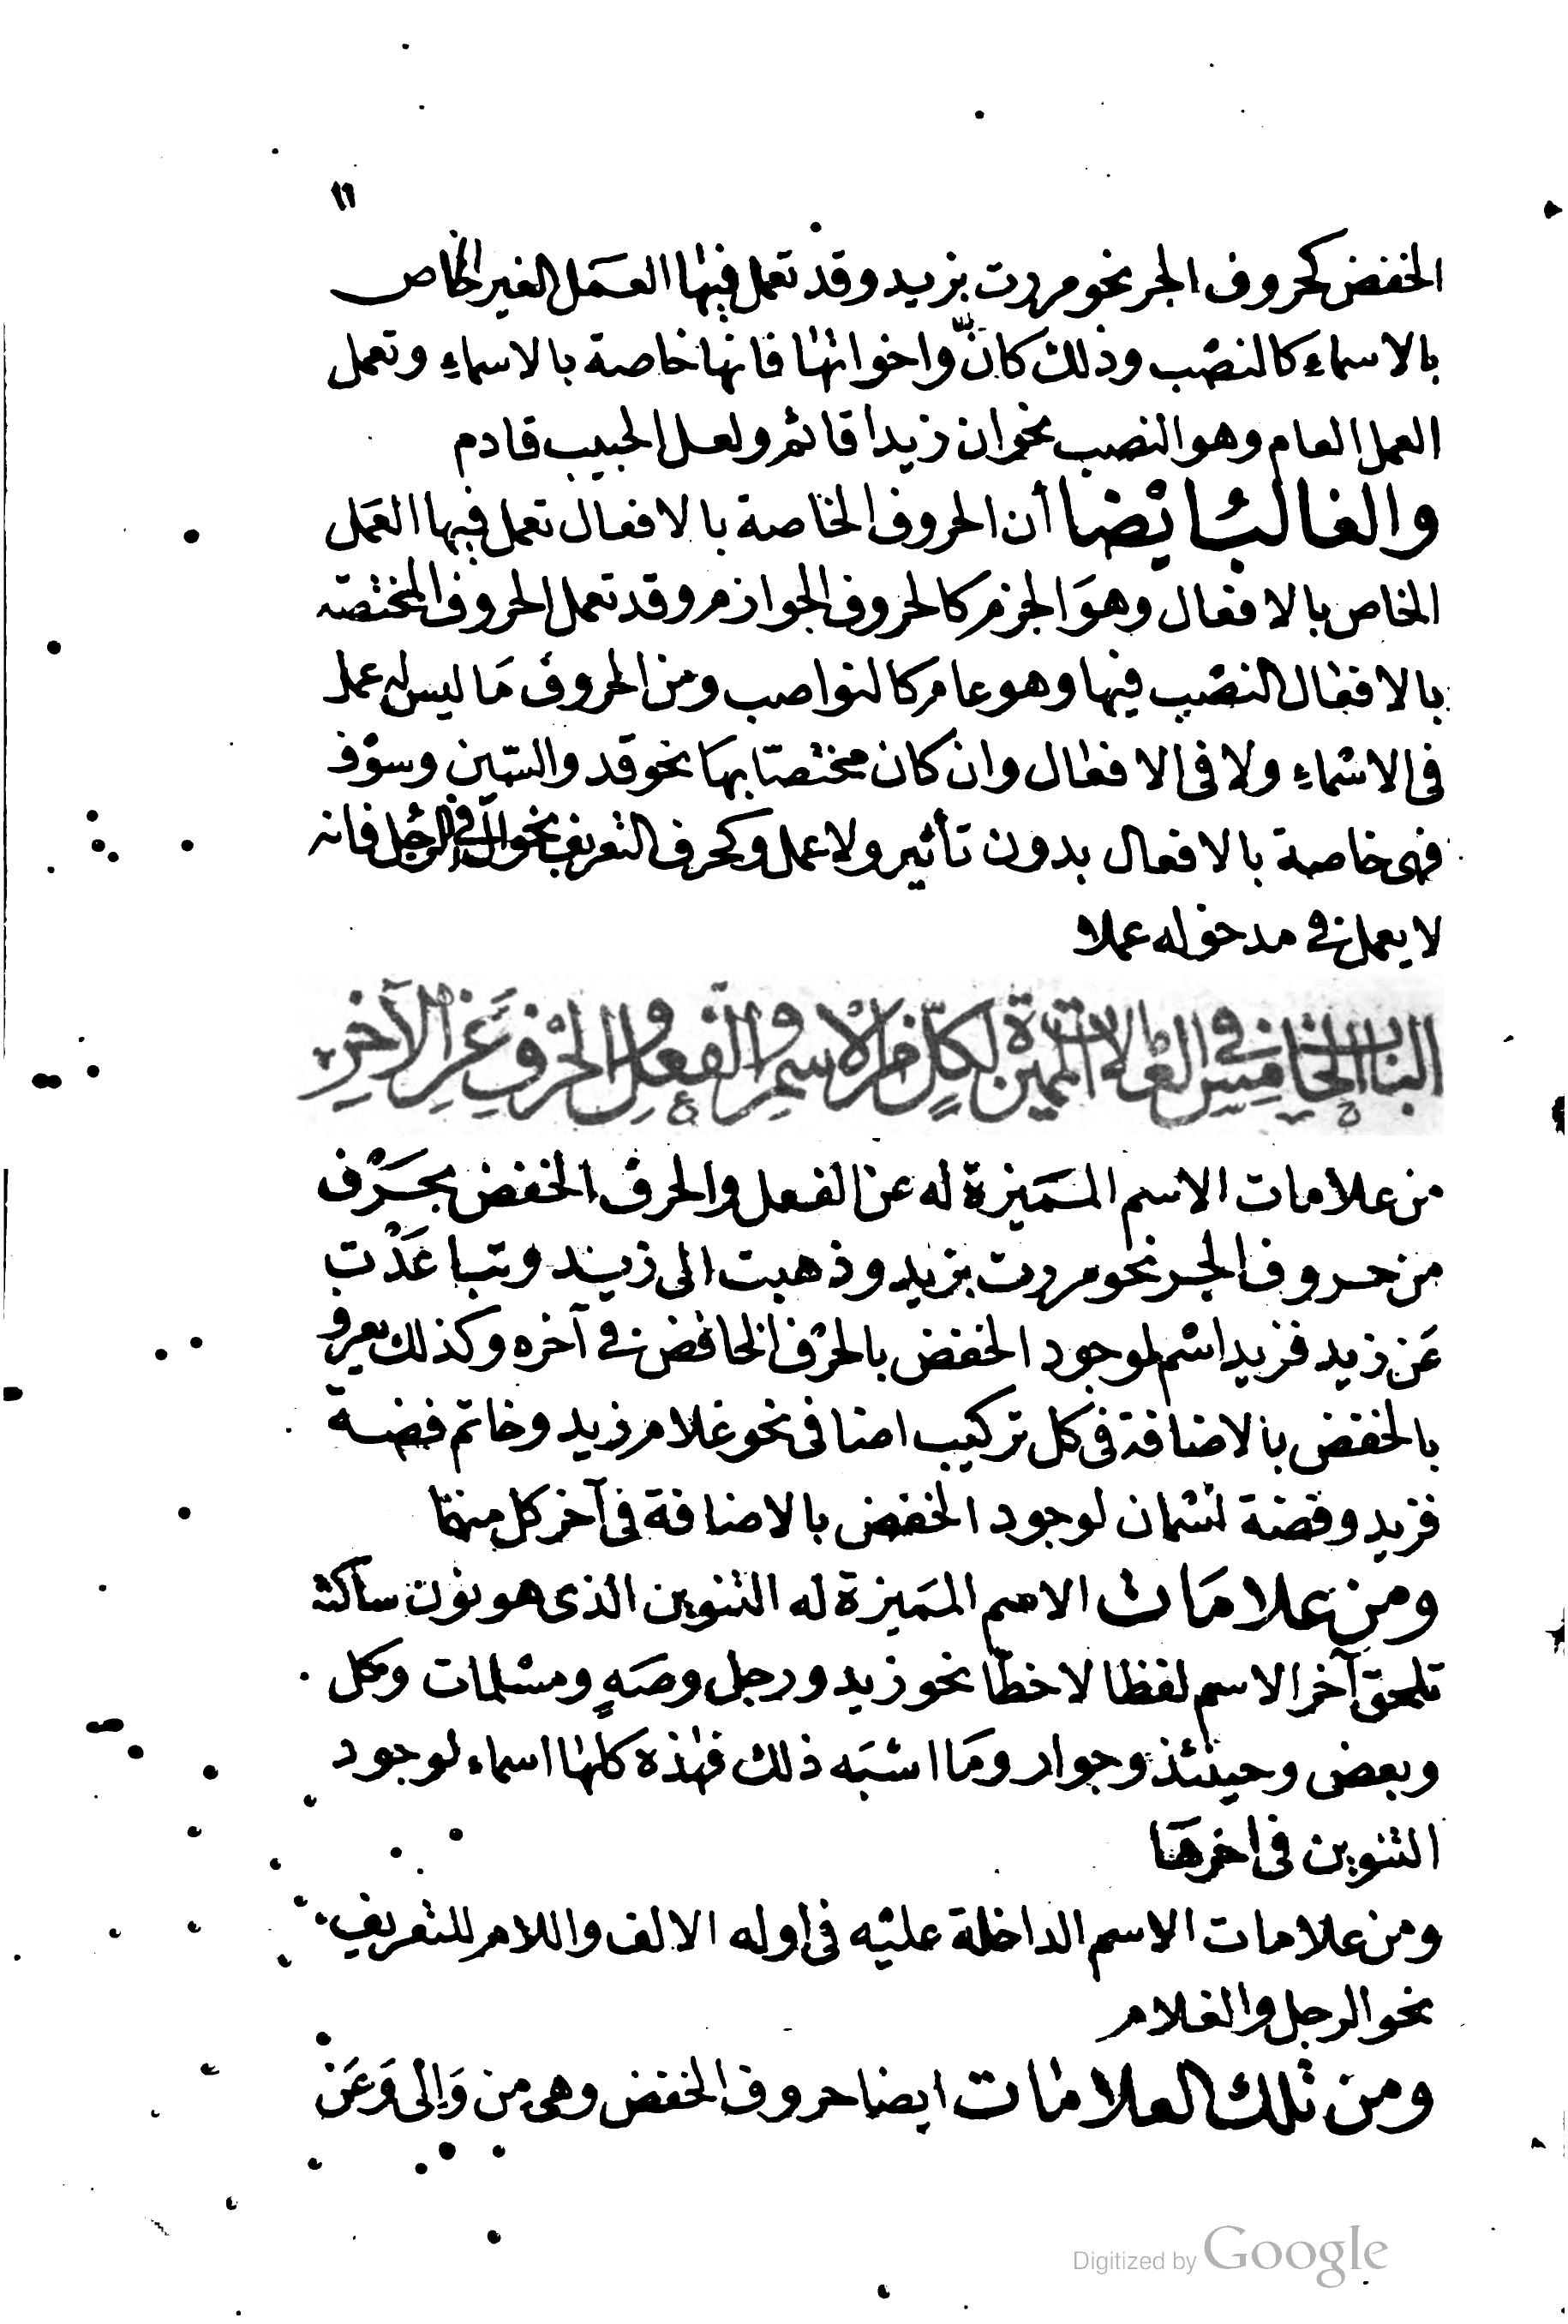 ١١
الخفض كحروف الجر نحو مررت بزيد وقد تعمل فيها العَمَل الغير الخاص
بالاسماءِ كالنصْب وذلك كانَّ واخواتها فانها خاصة بالاسماءِ وتعمل
العمل العام وهو النصب نحو ان زيدا قائم ولعل الحبيب قادم
والغالبُ ايْضا أن الحروف الخاصة بالافعال تعمل فيها العَمل
الخاص بالافعال وهوَ الجزم كالحروف الجوازم وقد تعمل الحروف المختصّة
بالافعال النصْب فيها وهو عام كالنواصب ومن الحروف مَا ليس له عمل
فى الاسْماءِ ولا فى الافعال وان كان مختصّا بهَا نحو قد والسّين وسوْف
فهى خاصة بالافعال بدون تأثير ولا عمل وكحرف التعريف نحو ال فى الرجُل فانه
لا يعمل فى مدخوله عملا
البَابُ الخَامِسِ فى العَلامَات المميّزة لكلٍّ من الاسمِ والفِعلِ والحَرْفِ عَنِ الآخرِ
من علامات الاسم المَميزة له عن الفعل والحرف الخفض بحَرْف
من حروف الجر نحو مررت بزيد وذهبت الى زيد وتباعَدْت
عَن زيد فزيد اسْم لوجود الخفض بالحرْف الخافض فى آخره وكذلك يعرف
بالخفض بالاضافة فى كل تركيب اضافى نحو غلام زيد وخاتم فضة
فزيد وفضة اسْمان لوجود الخفض بالاضافة فى آخر كل منهمَا
ومن علامَات الاسم المَميزة له التنوين الذى هو نون ساكنة
تلحق آخر الاسم لفظا لا خطّا نحو زيد ورجل وصَهٍ ومسْلمات وكل
وبعض وحينئذ وجوار ومَا اشبَه ذلك فهذه كلها اسماء لوجود
التنوين فى اخرهَا
ومن علامات الاسم الداخلة عليْه فى اوله الالف واللام للتعريف
نحو الرجل والغلام
ومن تلك العلامات ايضا حروف الخفض وهى من وَالى وَعَن
Digitized by Google